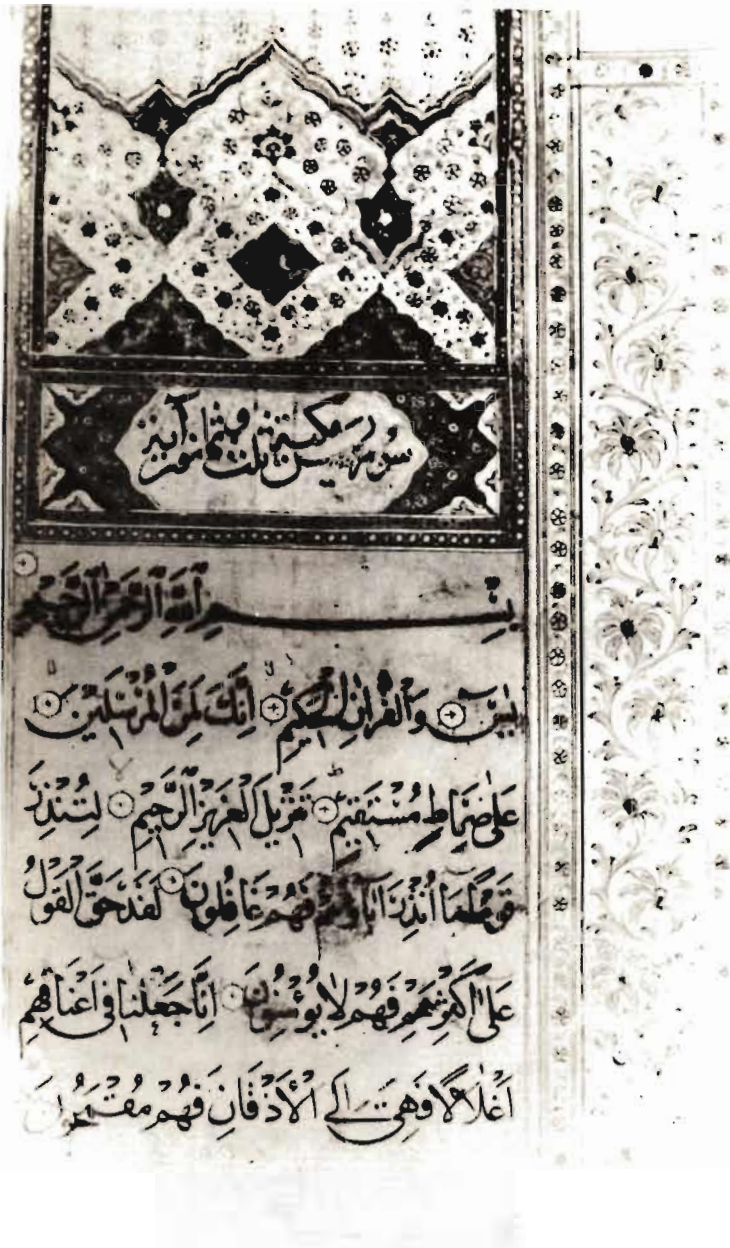 سورة يس مكية ثلث وثمانون آية
بِسْمِ اللَّهِ الرَّحْمَنِ الرَّحِيمِ
يٰسٓ وَالْقُرْاٰنِ الْحَكِيمِ اِنَّكَ لَمِنَ الْمُرْسَلِينَ
عَلٰى صِرَاطٍ مُسْتَقِيمٍ ط تَنْزِيلَ الْعَزِيزِ الرَّحِيمِ لِتُنْذِرَ
قَوْمًا مَا اُنْذِرَ اٰبَاؤُهُمْ فَهُمْ غَافِلُونَ لَقَدْ حَقَّ الْقَوْلُ
عَلٰى اَكْثَرِهِمْ فَهُمْ لَا يُؤْمِنُونَ اِنَّا جَعَلْنَا فِي اَعْنَاقِهِمْ
اَغْلَالًا فَهِيَ اِلَى الْاَذْقَانِ فَهُمْ مُقْمَحُونَ